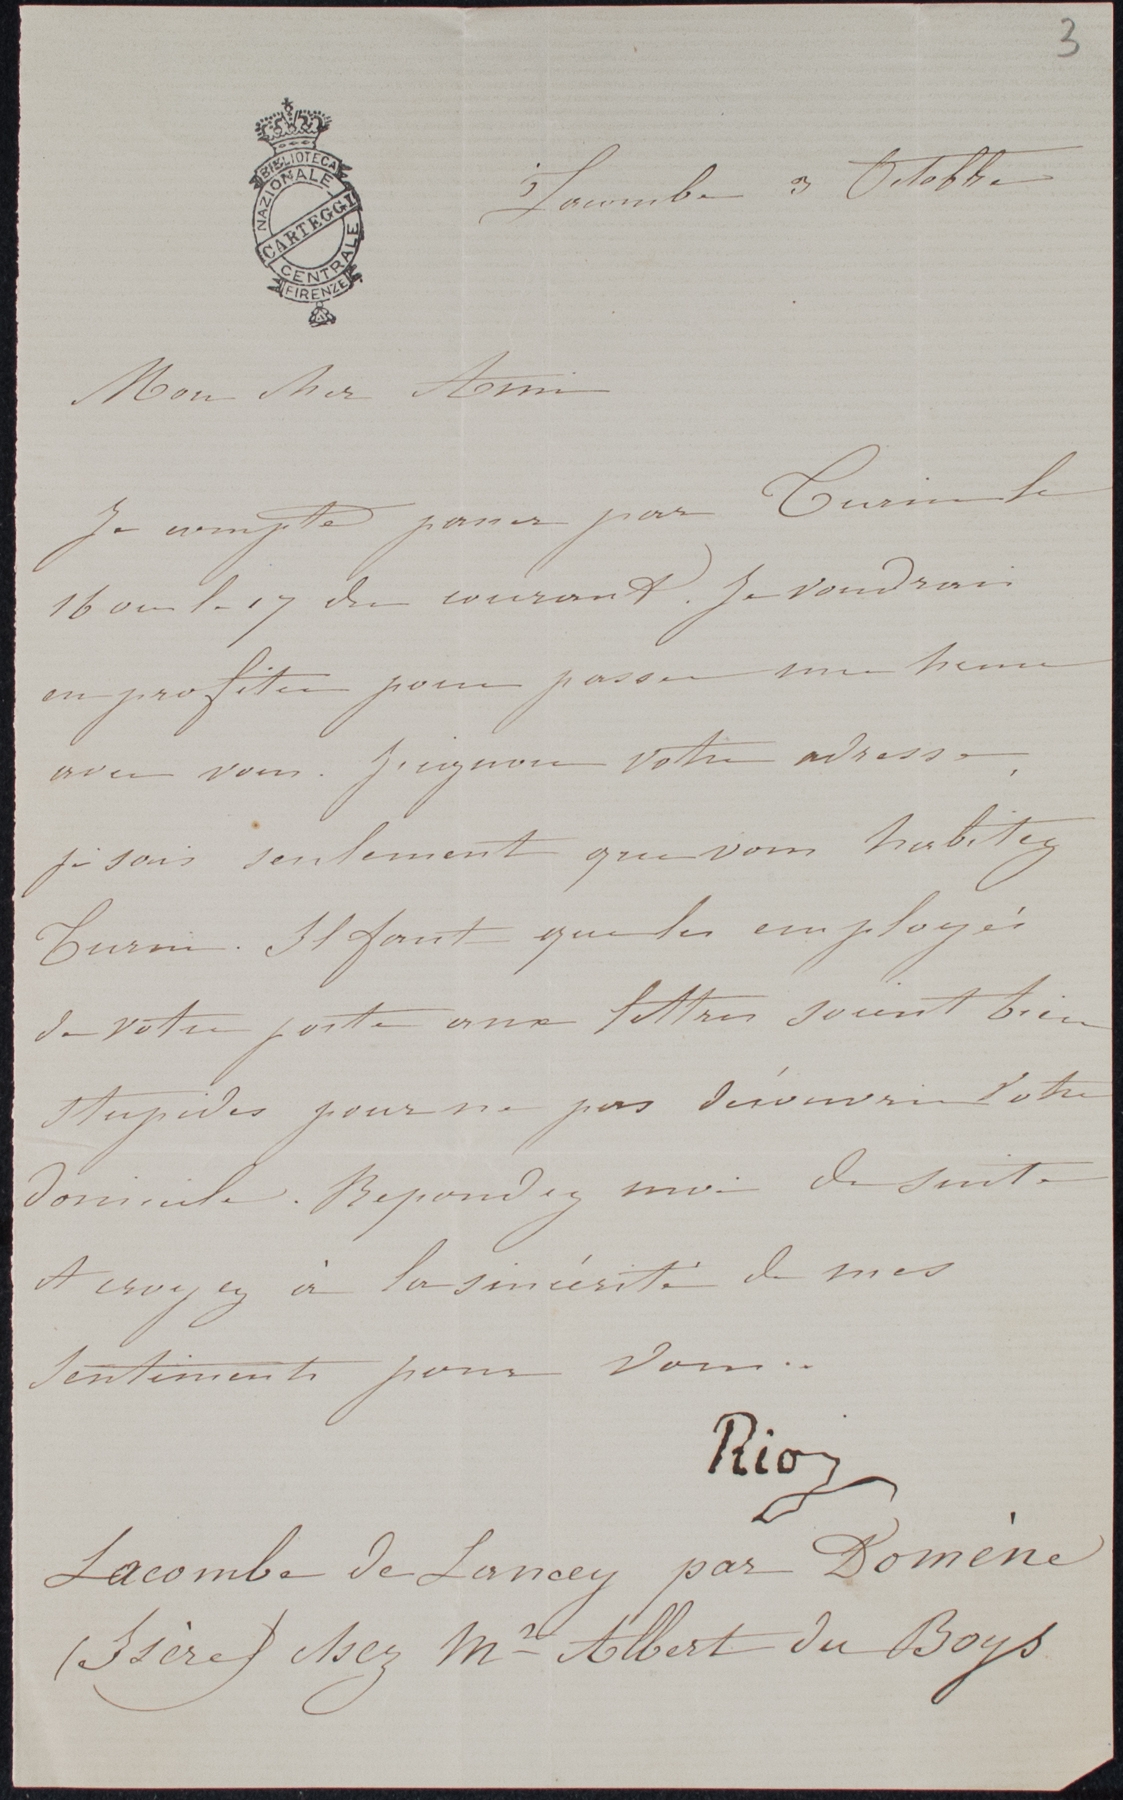 3
BIBLIOTECA
NAZIONALE
CARTEGGI
CENTRALE
FIRENZE
Lacombe 3 Octobre
Mon cher Ami
Je compte passer par Turin le
16 ou le 17 du courant. Je voudrai
en profiter pour passer une heure
avec vous. J'ignore votre adresse,
je sais seulement que vous habitez
Turin. Il faut que les employés
de votre poste aux lettres soient bien
stupides pour ne pas découvrir votre
domicile. Repondez moi de suite
et croyez à la sincérité de mes
sentiments pour vous.
Rioz
Lacombe de Lancey par Domène
(Isère) chez Mr Albert du Boys